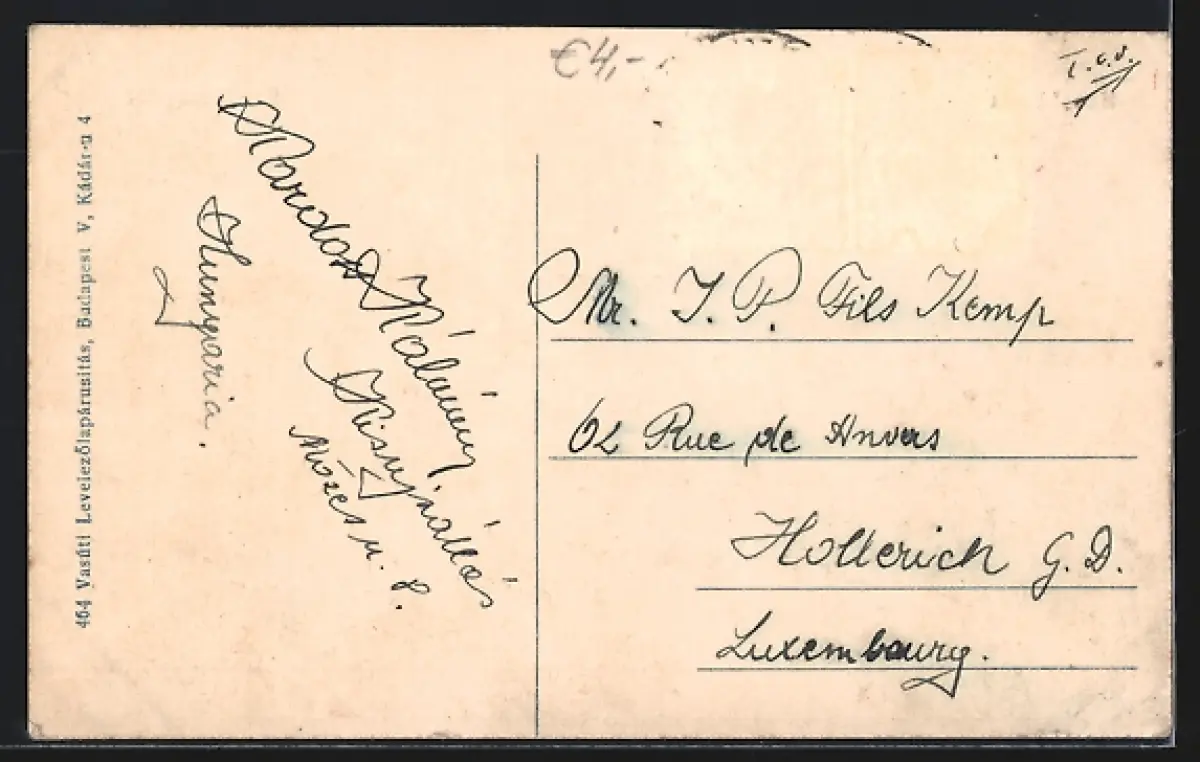 464 Vasúti Levelezőlapárusitás, Budapest V, Kádár-u 4
€4,-
T.C.V.
Mardos Kálmán
Kisujszállás
Mózes u. 8.
Hungaria.
Mr. J. P. Fils Kemp
62 Rue de Anvers
Hollerich G. D.
Luxembourg.